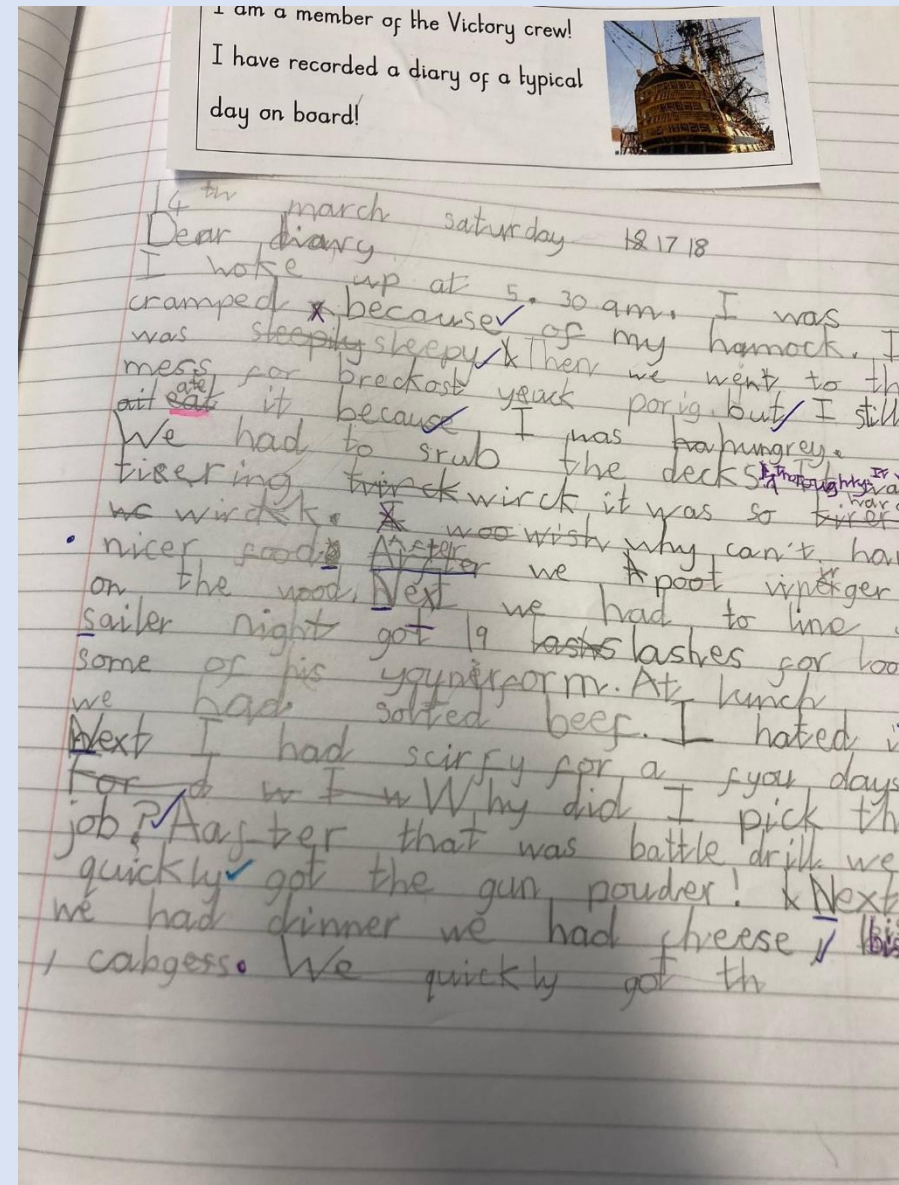 I am a member of the Victory crew!
I have recorded a diary of a typical
day on board!
14th march saturday 1817 18
Dear diary
I woke up at 5.30 am. I was
cramped because of my hamock. I
was sleepily sleepy Then we went to th
mess for breckost yeack porig. but I still
ait eat ate it because I was ha hungrey.
We had to srub the decks thoroughly. It wa
tisering twirck wirck it was so hard tirer
wc wirck. woo wish why can't ha
nicer food. After we poot vineger
on the wood. Next we had to line
sailer night got 19 lashs lashes for loo
some of his yqynerform. At lunch
we had solted beef. I hated i
Next I had scirfy for a fyou days
For d w I w Why did I pick th
job? Aafter that was battle drill we
quickly got the gun pouder! Next
we had dinner we had cheese, bis
, cabgess. We quickly got th